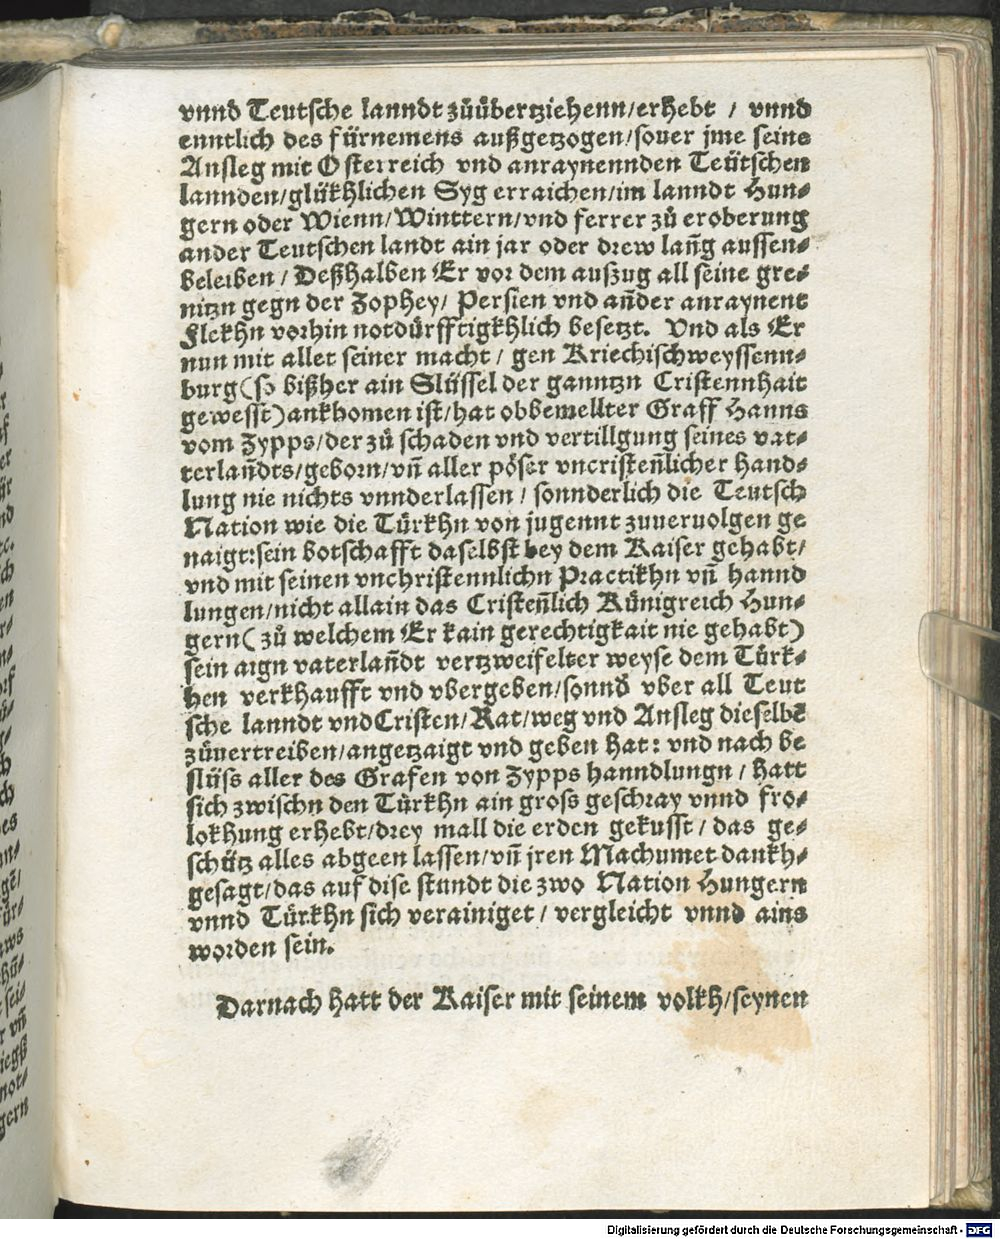 vnnd Teutsche lanndt zůůbertziehenn/erhebt / vnnd
enntlich des fürnemens außgetzogen/souer jme seine
Ansleg mit Osterreich vnd anraynennden Teütschen
lannden/glükhlichen Syg erraichen/im lanndt Hun-
gern oder Wienn/Winttern/vnd ferrer zů eroberung
ander Teutschen landt ain jar oder drew lang̃ aussen-
beleiben / Deßhalben Er vor dem außzug all seine gre-
nitzn gegn der Zophey/ Persien vnd añder anraynent
Flekhn vorhin notdürfftigkhlich besetzt. Vnd als Er
nun mit aller seiner macht / gen Kriechischweyssenn-
burg(so bißher ain Slüssel der ganntzn Cristennhait
gewesst)ankhomen ist/hat obbemellter Graff Hanns
vom Zypps/der zů schaden vnd vertillgung seines vat-
terlañdts/geborn/vñ aller pöser vncristeñlicher hand-
lung nie nichts vnnderlassen / sonnderlich die Teutsch
Nation wie die Türkhn von jugennt zuueruolgen ge
naigt:sein botschafft daselbst bey dem Kaiser gehabt/
vnd mit seinen vnchristennlichn Practikhn vñ hannd
lungen/nicht allain das Cristeñlich Künigreich Hun-
gern( zů welchem Er kain gerechtigkait nie gehabt)
sein aign vaterlañdt vertzweifelter weyse dem Türk-
hen verkhaufft vnd vbergeben/sonnd̃ vber all Teut
sche lanndt vnd Cristen/Rat/weg vnd Ansleg dieselbẽ
zůuertreiben/angetzaigt vnd geben hat: vnd nach be
slüss aller des Grafen von Zypps hanndlungn / hatt
sich zwischn den Türkhn ain gross geschray vnnd fro-
lokhung erhebt/drey mall die erden gekusst / das ge-
schütz alles abgeen lassen/vñ jren Machumet dankh-
gesagt/das auf dise stundt die zwo Nation Hungern
vnnd Türkhn sich verainiget / vergleicht vnnd ains
worden sein.
Darnach hatt der Kaiser mit seinem volkh/seynen
Digitalisierung gefördert durch die Deutsche Forschungsgemeinschaft - DFG